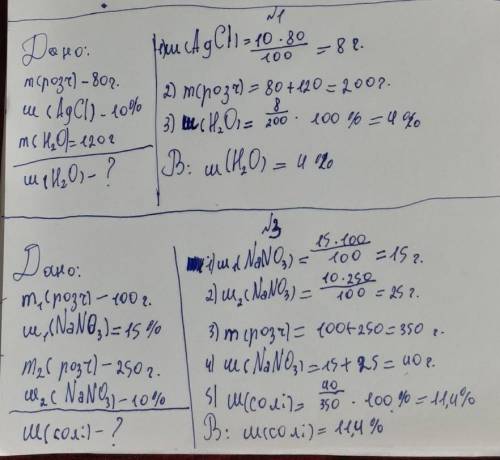 №1
Дано:
m(розч)-80г.
ш(AgCl)-10%
m(H₂O)=120г
ш(H₂O)-?
1) ш(AgCl)=10·80/100=8г.
2) m(розч)=80+120=200г.
3) ш(H₂O)=8/200·100%=4%
В: ш(H₂O)=4%
№3
Дано:
m₁(розч)-100г.
ш₁(NaNO₃)=15%
m₂(розч)-250г.
ш₂(NaNO₃)-10%
ш(солі)-?
1) ш₁(NaNO₃)=15·100/100=15г.
2) ш₂(NaNO₃)=10·250/100=25г.
3) m(розч)=100+250=350г.
4) ш(NaNO₃)=15+25=40г.
5) ш(солі)=40/350·100%=11,4%
В: ш(солі)=11,4%